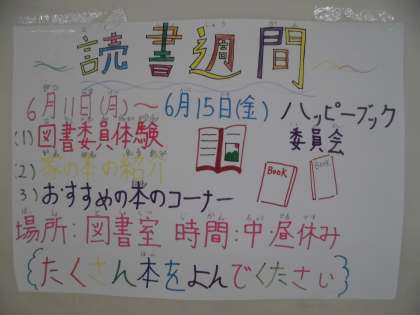 ～読書週間～
6月11日(月)～6月15日(金) ハッピーブック
委員会
(1)図書委員体験
(2) の本の紹介
3)おすすめの本のコーナー
Book
Book
場所:図書室 時間:中・昼休み
{たくさん本をよんでください}